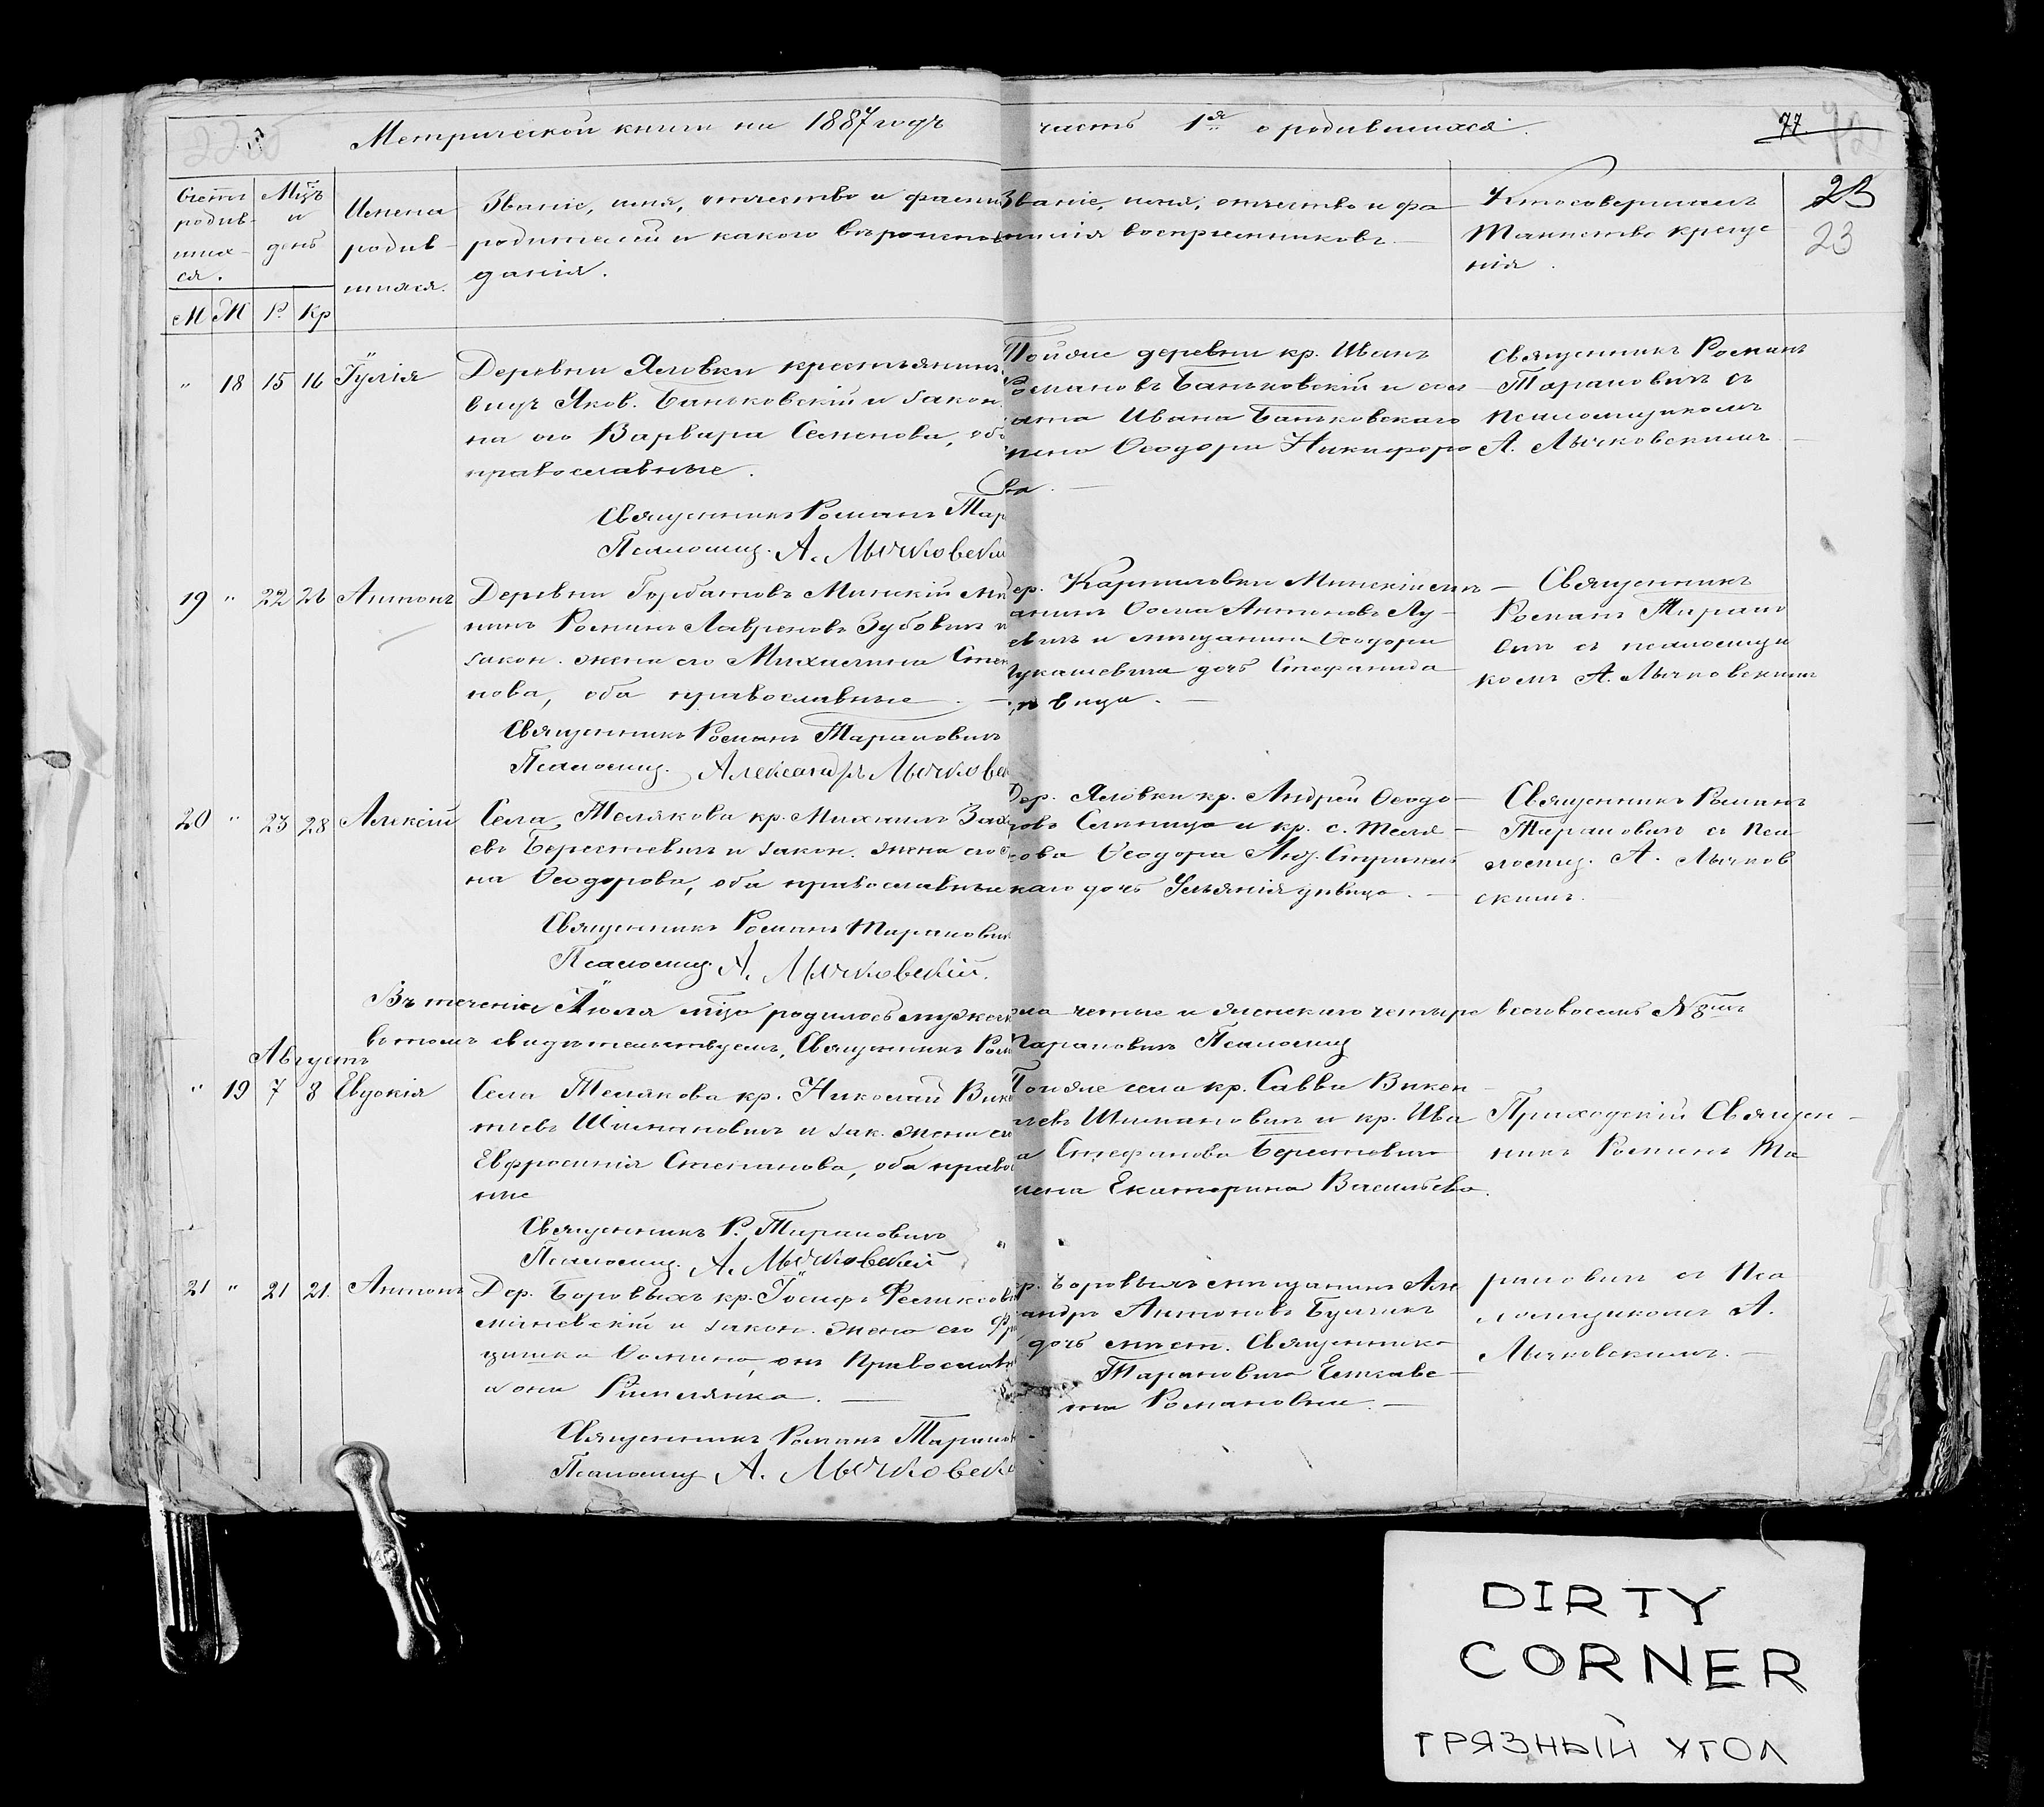 Метрической книги на 1887 годъ часть 1я о родившихся. 77
Счетъ родив- шихся. Мцъ и день Имена родив- шихся. Званіе, имя, отчество и фамил
родителей и какого вѣроиспов
данія.
Званіе, имя, отчество и фа
милія воспріемниковъ.
Кто совершалъ
Таинство креще
нія.
23
23
М Ж Р. Кр
" 18 15 16 Іулія
Деревни Яловки крестьянинъ
Яков. Баньковскій и закон.
на его Варвара Семенова, об
православные.
Священникъ Романъ Тар
Псаломщ. А. Лычковски
Тойже деревни кр. Иванъ
Романовъ Баньковскій и
Ивана Баньковскаго
жена Ѳеодора Никифоро
ва.
Священникъ Романъ
Тарановичъ съ
псаломщикомъ
А. Лычковскимъ
19 " 22 26 Антонъ
Деревни Горбатовъ Минскій мѣ
нинъ Романъ Лавреновъ Зубовичъ и
закон. жена его Михалина Сте
нова, оба православные.
Священникъ Романъ Тарановичъ
Псаломщ. Александръ Лычковск
дер. Карпиловки Минскій мѣщ
анинъ Ѳома Антоновъ Лу-
евичъ и мѣщанина Ѳеодора
Лукашевича дочь Стефанида
дѣвица.
Священникъ
Романъ Тарано
вичъ съ псаломщи
комъ А. Лычковскимъ
20 " 23 28 Алексій
Села Телякова кр. Михаилъ Зах
евъ Берестевичъ и закон. жена его
на Ѳеодорова, оба православные
Священникъ Романъ Тарановичъ
Псаломщ. А. Лычковскій.
Дер. Яловки кр. Андрей Ѳеодо-
ровъ Селницо и кр. с. Теля-
кова Ѳеодора Анд.
каго дочь Ульянія дѣвица.
Священникъ Романъ
Тарановичъ съ пса
ломщ. А. Лычков
скимъ.
Въ теченіи Іюля мца родилось мужеска пола четыре и женскаго четыре всего восемь № 8мъ
въ томъ свидѣтельствуемъ, Священникъ Ром Тарановичъ Псаломщ
Августъ
" 19 7 8 Евдокія
Села Телякова кр. Николай Вике
тіевъ Шимановичъ и зак. жена ег
Евфросинія Степанова, оба правос
ные
Священникъ Р. Тарановичъ
Псаломщ. А. Лычковскій
Тогоже села кр. Савва Викен
тіевъ Шимановичъ и кр. Ива
а Стефанова Берестевича
жена Екатерина Васильева.
Приходскій Священ-
никъ Романъ Та
21 " 21 21 Антонъ
Дер. Боровыхъ кр. Іосифъ Феликсов
миневскій и закон. жена его Фра
цишка Ѳомина, онъ Православн
и она Римлянка.
Священникъ Романъ Таранов
Псаломщ А. Лычковски
р. Боровыхъ мѣщанинъ Але
андръ Антоновъ Булчикъ
дочь мѣст. Священника
Тарановича Елизаве-
та Романовна.
рановичъ съ Пса
ломщикомъ А.
Лычковскимъ.
DIRTY
CORNER
ГРЯЗНЫЙ УГОЛ